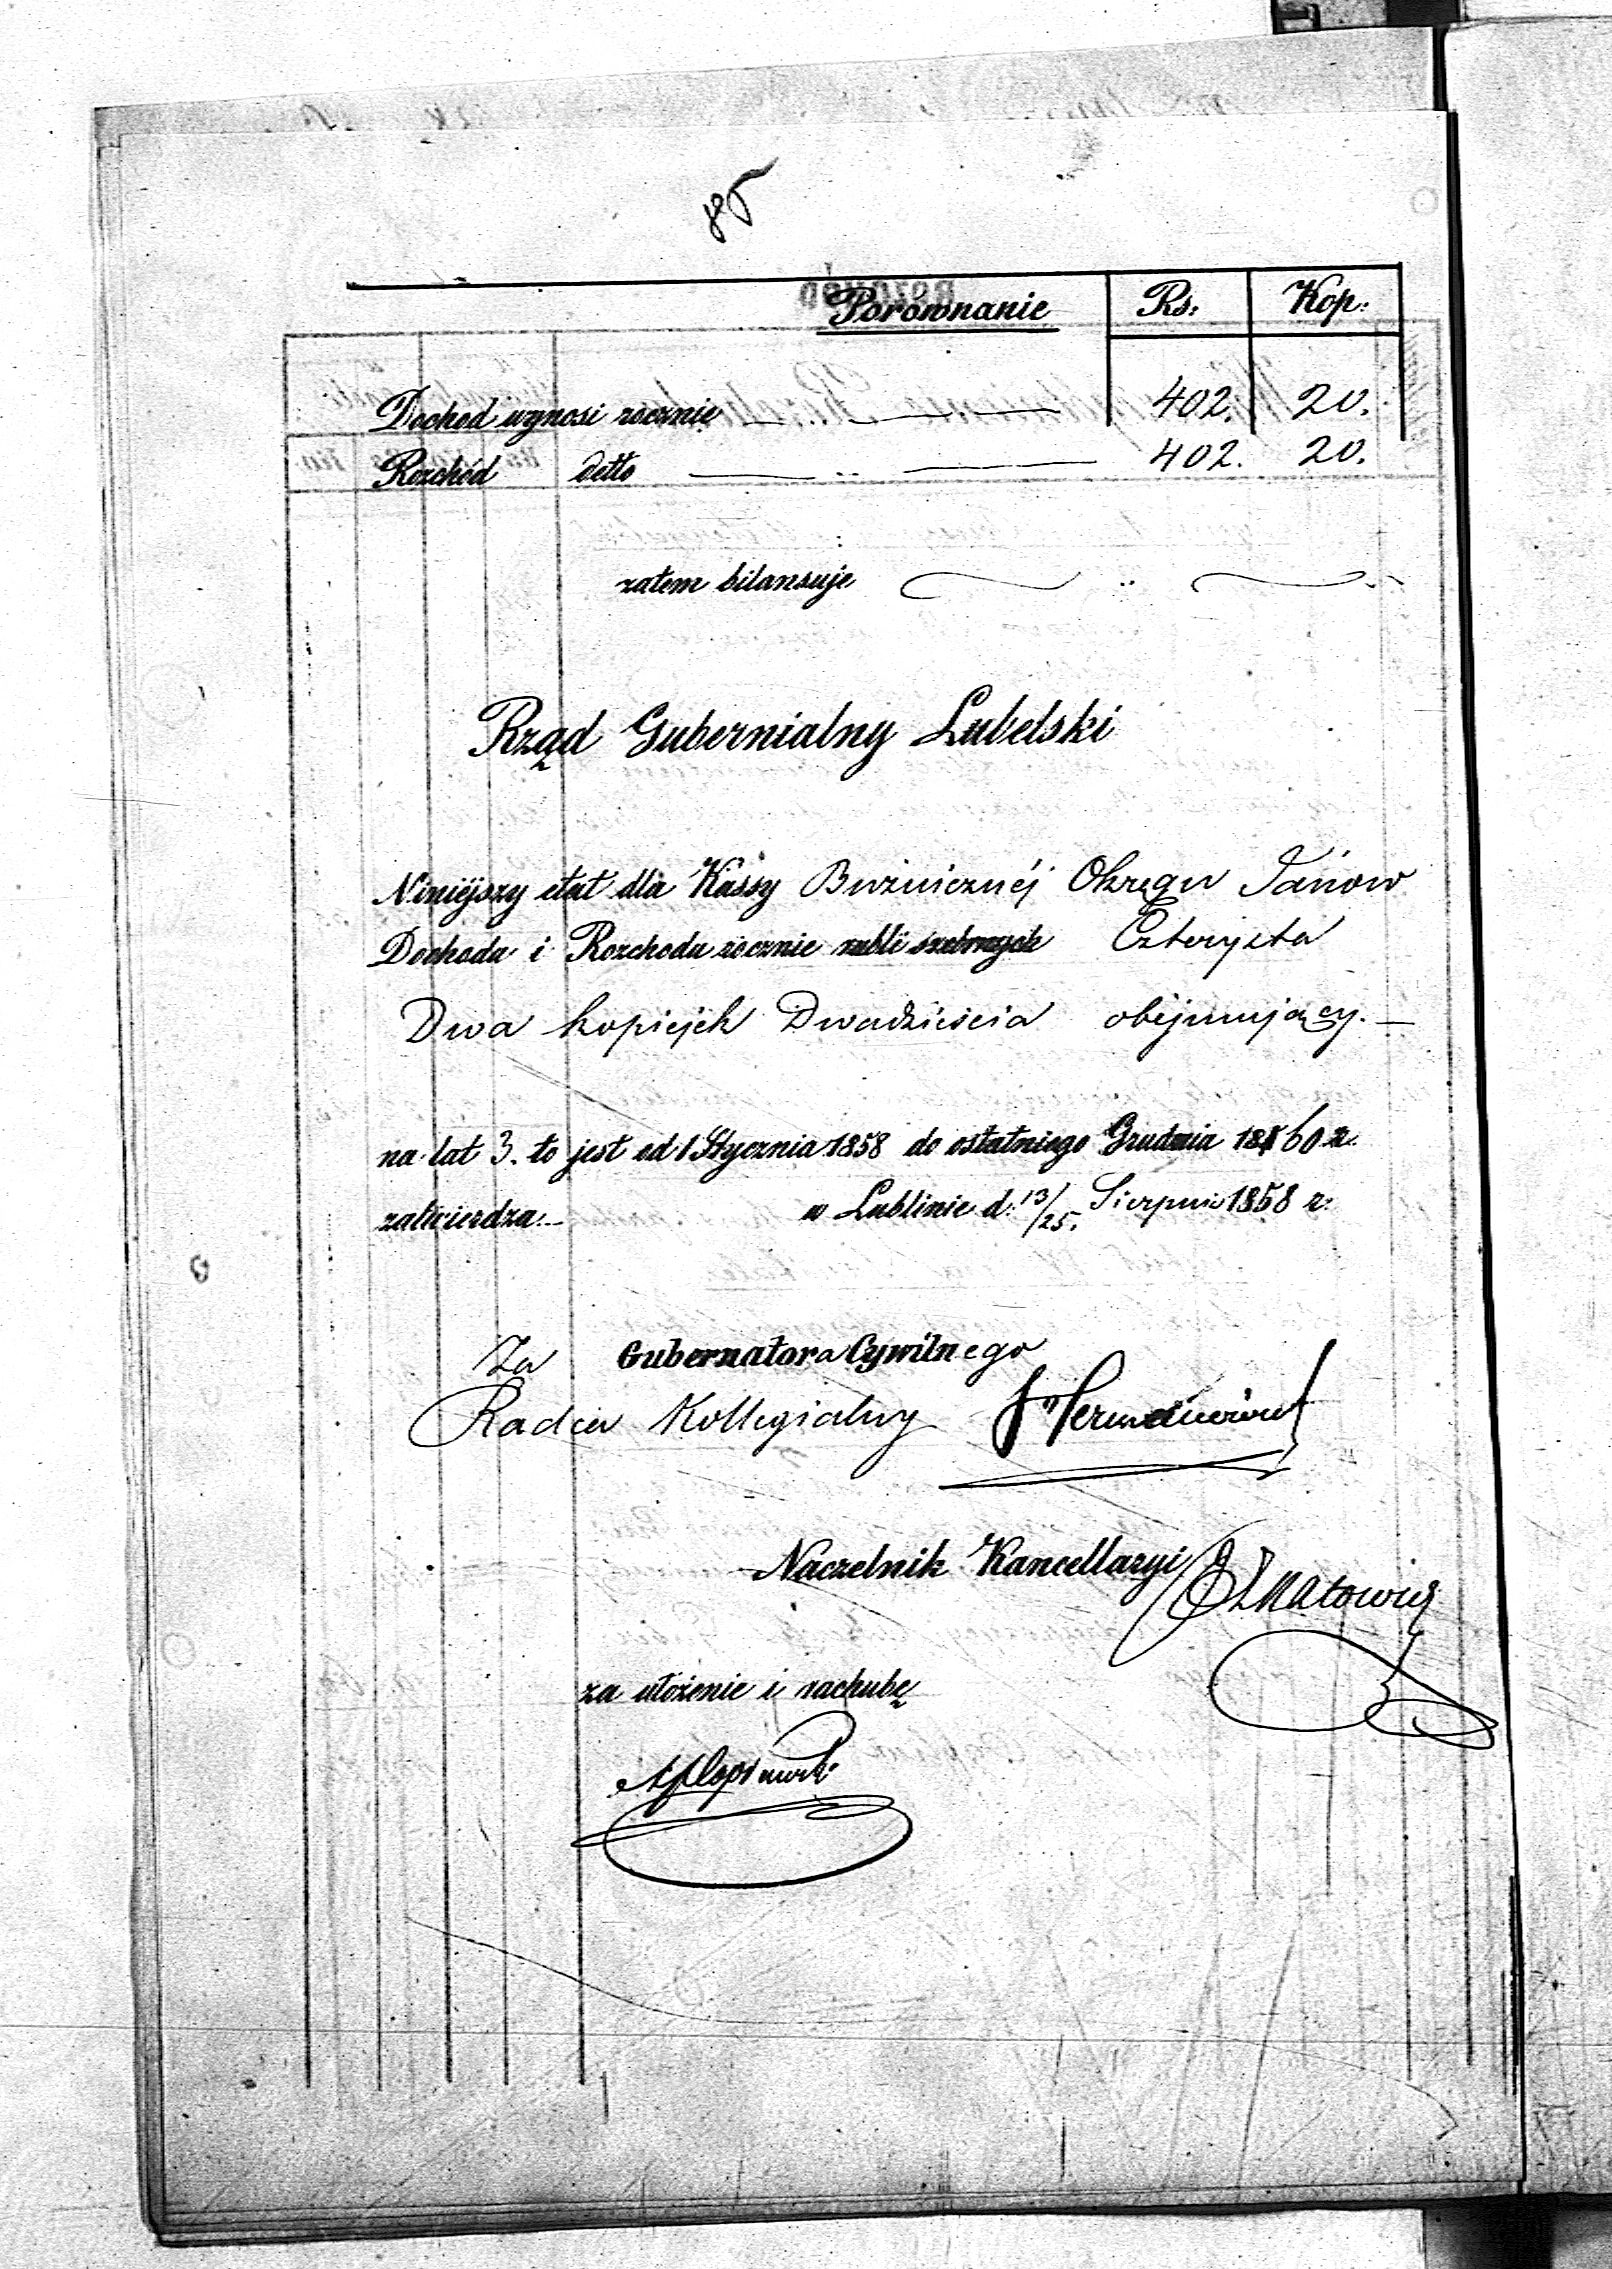 Porównanie Rs: Kop:
Dochód wynosi rocznie 402. 20.
Rozchód detto 402. 20.
zatem bilansuje
Rząd Gubernialny Lubelski
Niniéjszy etat dla Kassy Bużnicznéj Okręgu Janow
Dochodu i Rozchodu rocznie rubli srebrnych Czterysta
Dwa kopiejek Dwadzieścia obejmujący.
na lat 3. to jest od 1 Stycznia 1858 do ostatniego Grudnia 1860 r.
zatwierdza. w Lublinie d. 13/25. Sierpnia 1858 r.
Za Gubernatora Cywilnego
Radca Kollegialny
Naczelnik Kancellaryi
za ułożenie i rachubę